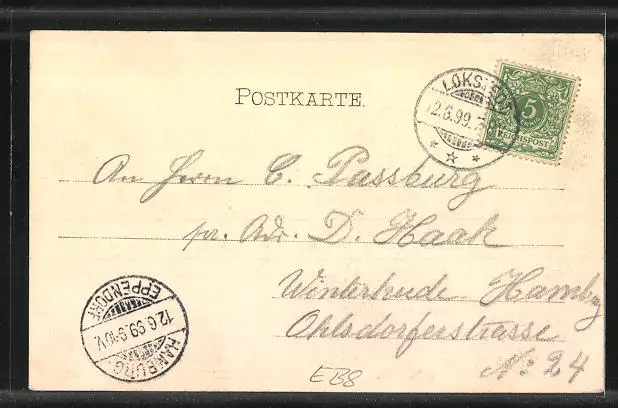 POSTKARTE.
LOKSTEDT
12.6.99.7-8
5
REICHSPOST
An Herrn C. Passburg
pr. Adr. D. Haak
Winterhude Hamburg
Ohlsdorferstrasse
No: 24
HAMBURG-
12.6.99.9-10V.
EPPENDORF
EB8